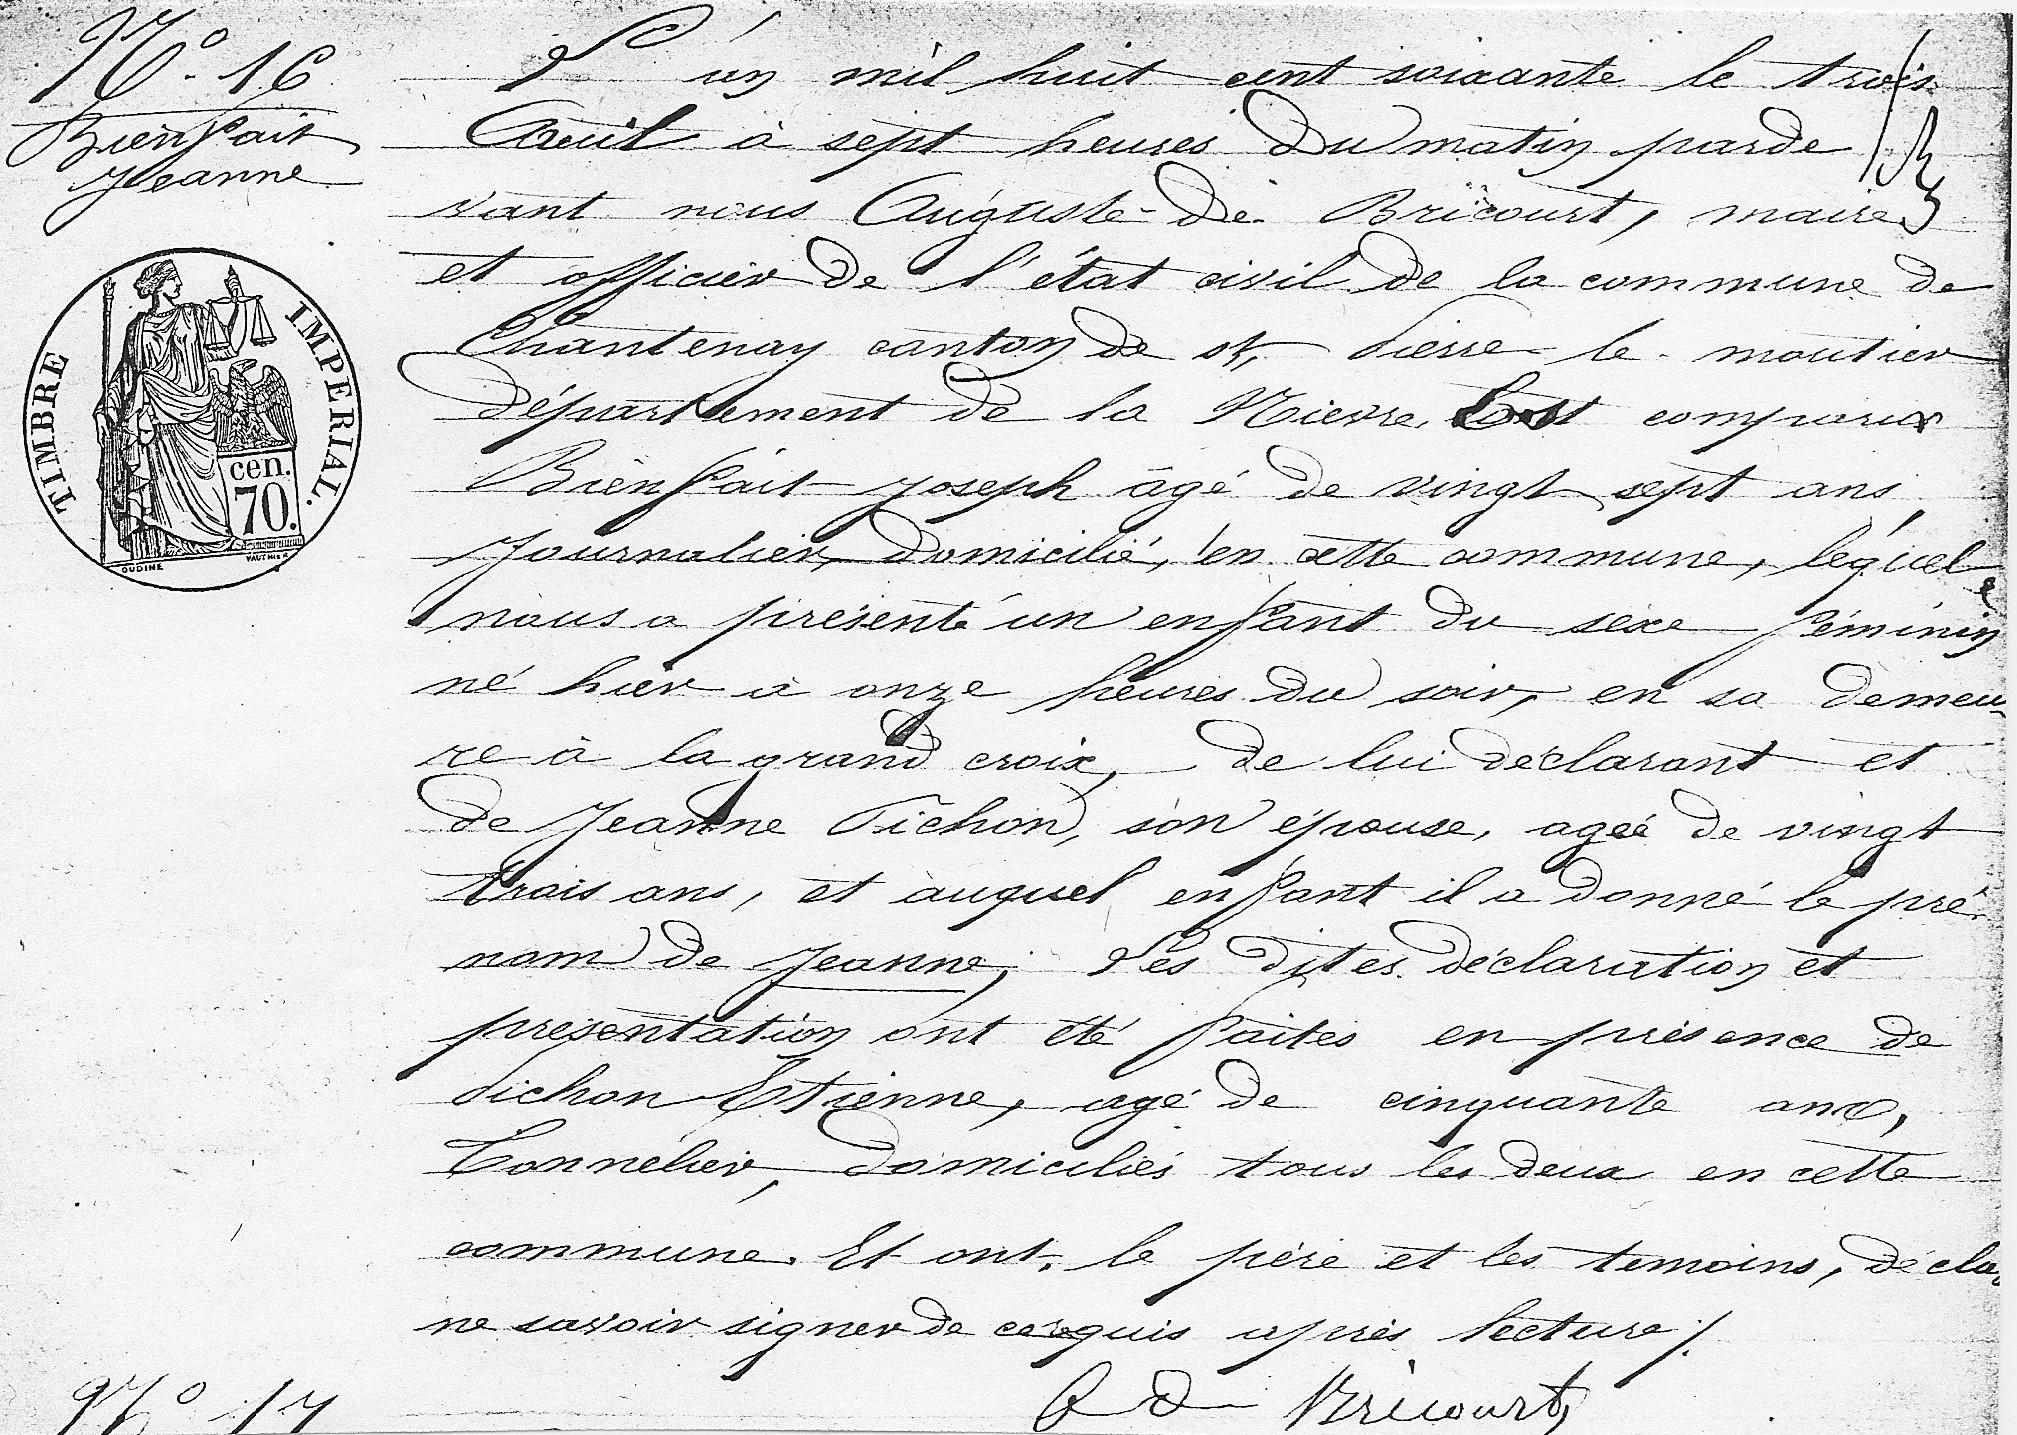 N.o 16
Bienfait
Jeanne
TIMBRE IMPERIAL.
cen.
70.
OUDINÉ
VAUTHIER
L'an mil huit cent soixante le trois
Avril à sept heures du matin parde
vant nous Auguste de Bricourt, maire
et officier de l'état civil de la commune de
Chantenay canton de st, Pierre le moutier
département de la Nievre, est comparu
Bienfait Joseph âgé de vingt sept ans,
Journalier, domicilié, en cette commune, lequel
nous a présenté un enfant du sexe féminin
né hier à onze heures du soir, en sa demeu
re à la grand croix, de lui déclarant et
de Jeanne Pichon, son épouse, agée de vingt
trois ans, et auquel enfant il a donné le pré
nom de Jeanne; Les dites déclaration et
présentation ont été faites en présence de
Pichon Etienne, agé de cinquante ans,
Tonnelier, domiciliés tous les deux en cette
commune. Et ont, le père et les temoins, décla
ne savoir signer de ce requis après lecture /.
A De Bricourt
N.o 17